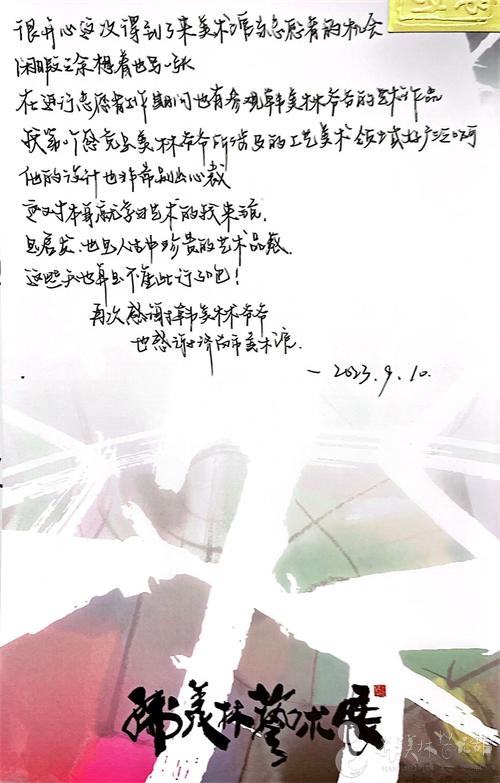 很开心这次得到了来美术馆当志愿者的机会
闲暇之余想着也写一张
在进行志愿者工作期间也有参观韩美林爷爷的艺术作品
我第一个感觉是美林爷爷所涉及的工艺美术领域好广泛啊
他的设计也非常别出心裁
这对本身就学习艺术的我来说,
是启发、也是人生中珍贵的艺术品藏.
这些天也算是不虚此行了吧!
再次感谢韩美林爷爷
也感谢济南市美术馆.
—2023.9.10.
韩美林艺术展
韩美林艺术馆